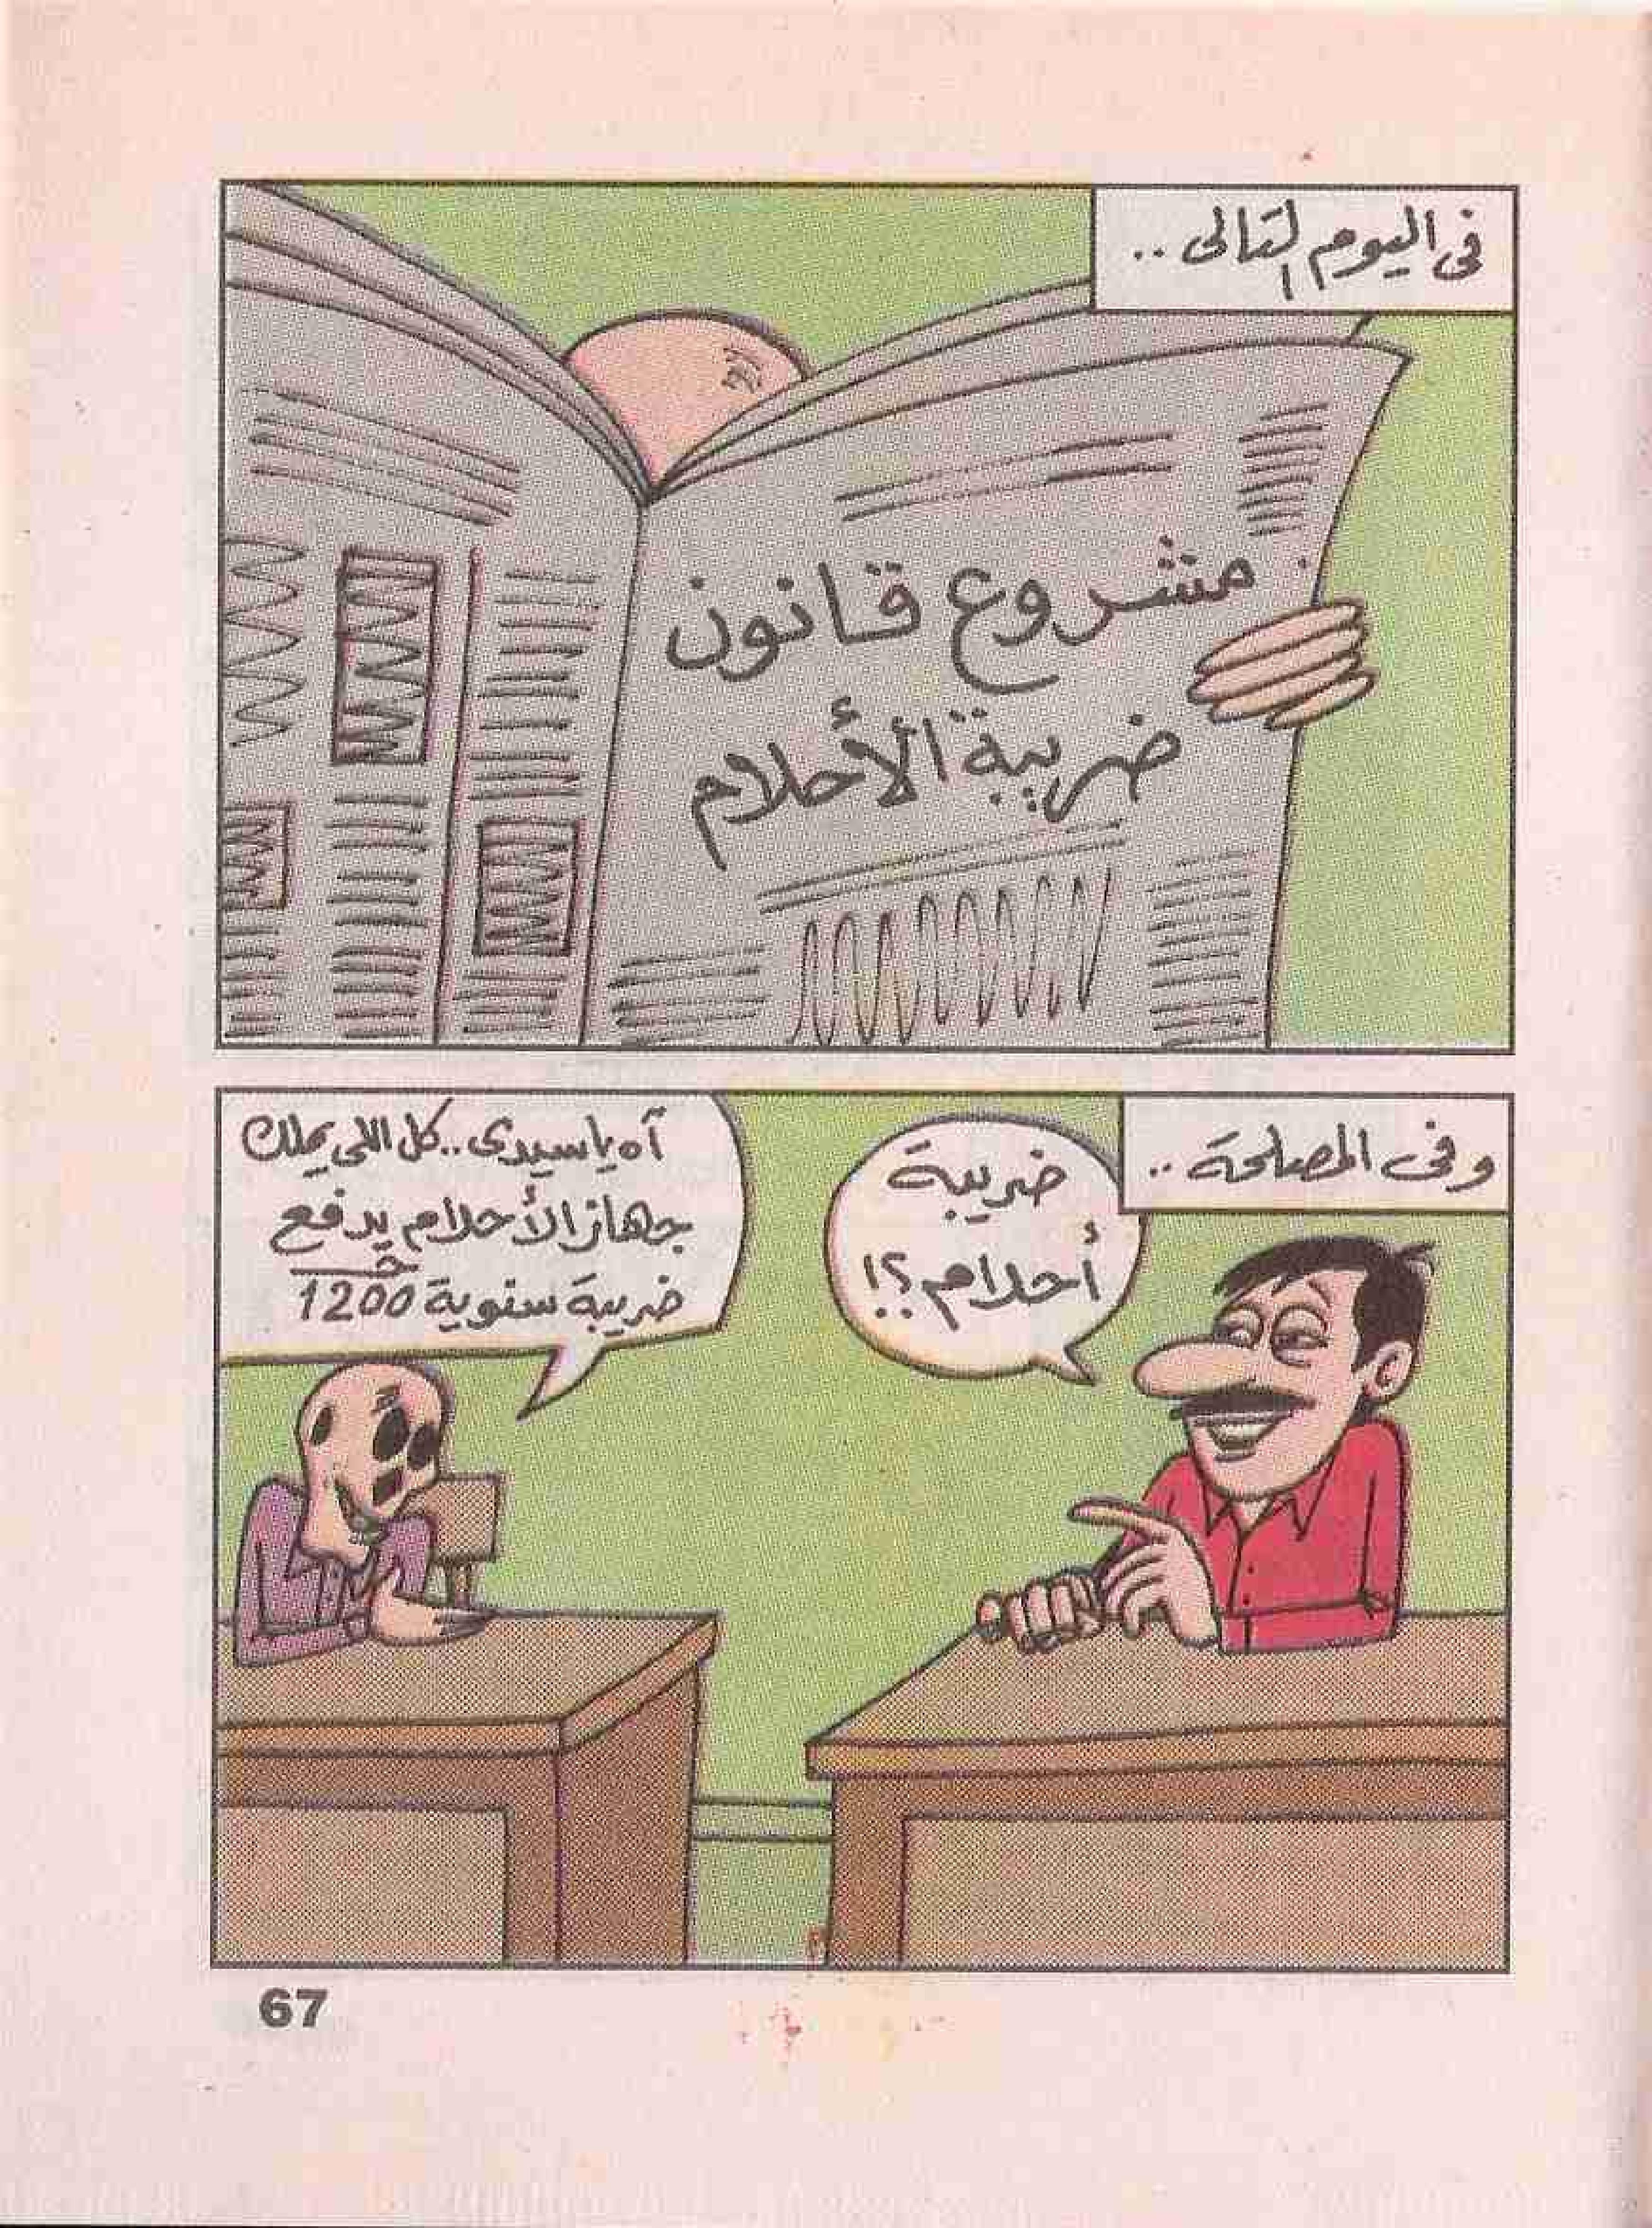 فى اليوم التالى ..
مشروع قانون
ضريبة الأحلام
وفى المصلحة ..
ضريبة
أحلام؟!
آه ياسيدى .. كل اللى يملك
جهاز الأحلام يدفع
ضريبة سنوية 1200 جـ
67